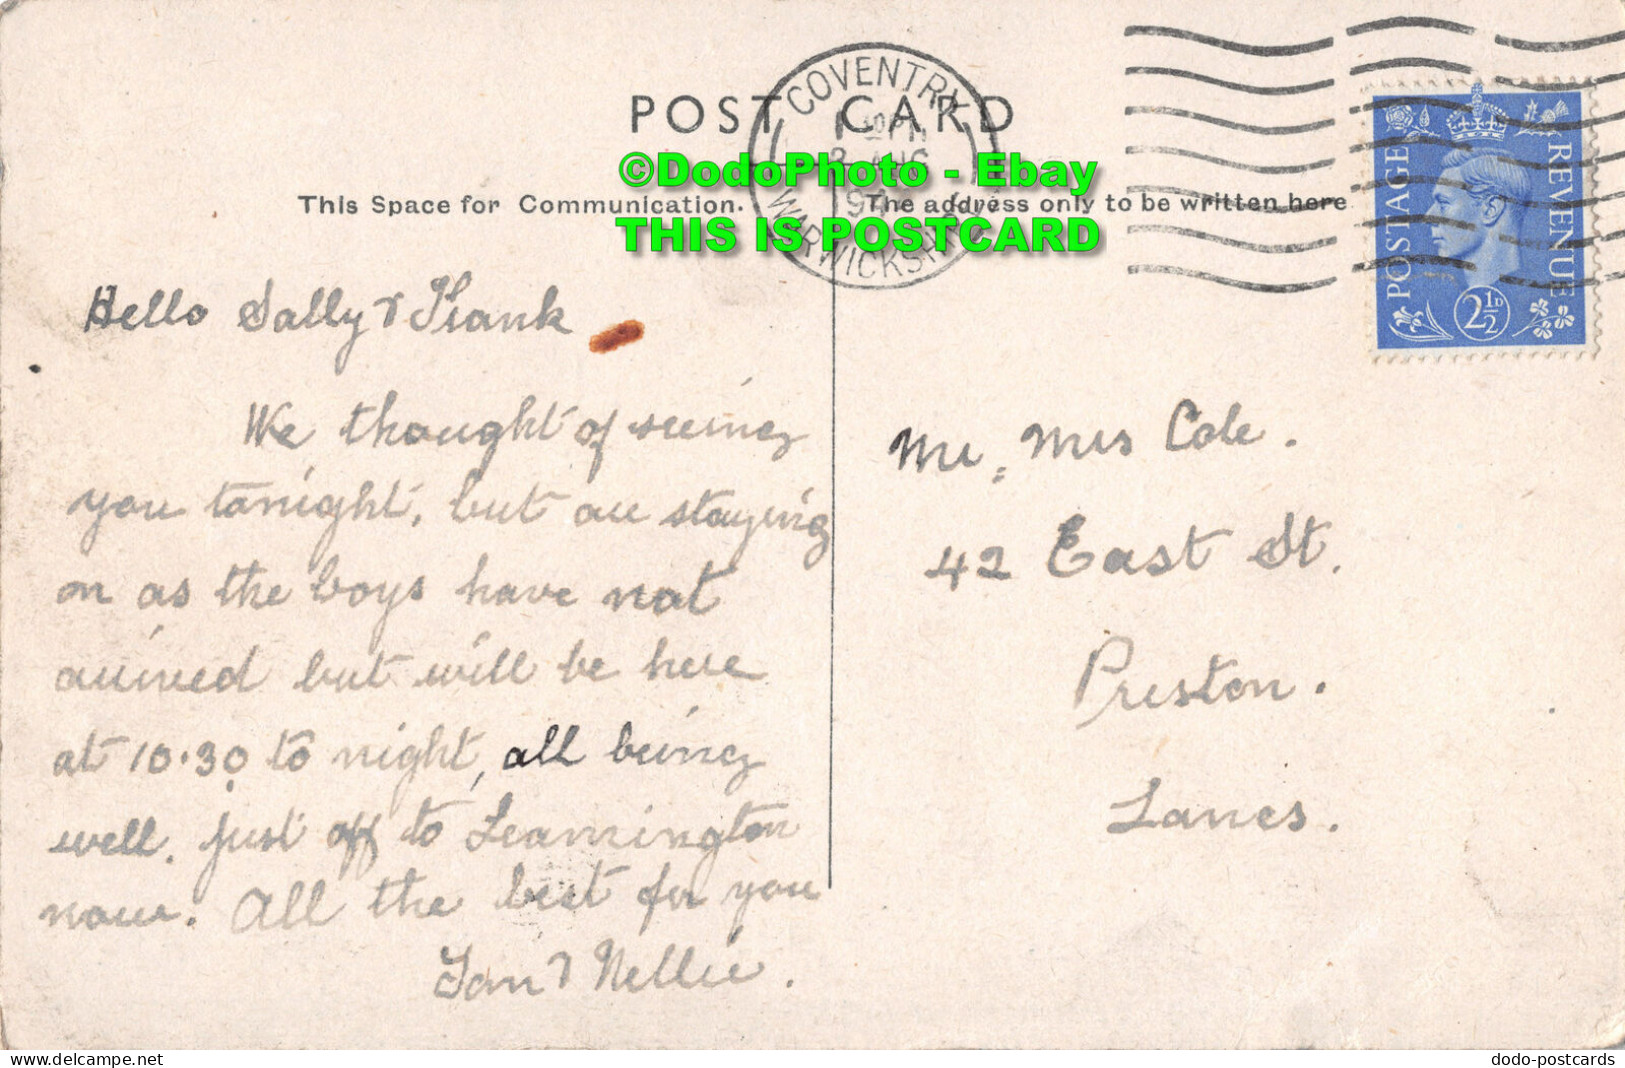 POST CARD
COVENTRY
WARWICKSHIRE
AUG
194
©DodoPhoto - Ebay
THIS IS POSTCARD
This Space for Communication.
The address only to be written here
POSTAGE
REVENUE
2½D
Hello Sally & Frank
We thought of seeing
you tonight, but are staying
on as the boys have not
arrived but will be here
at 10.30 to night, all being
well. just off to Leamington
now. All the best for you
& Nellie.
Mr, Mrs Cole.
42 East St.
Preston.
Lancs.
dodo-postcards